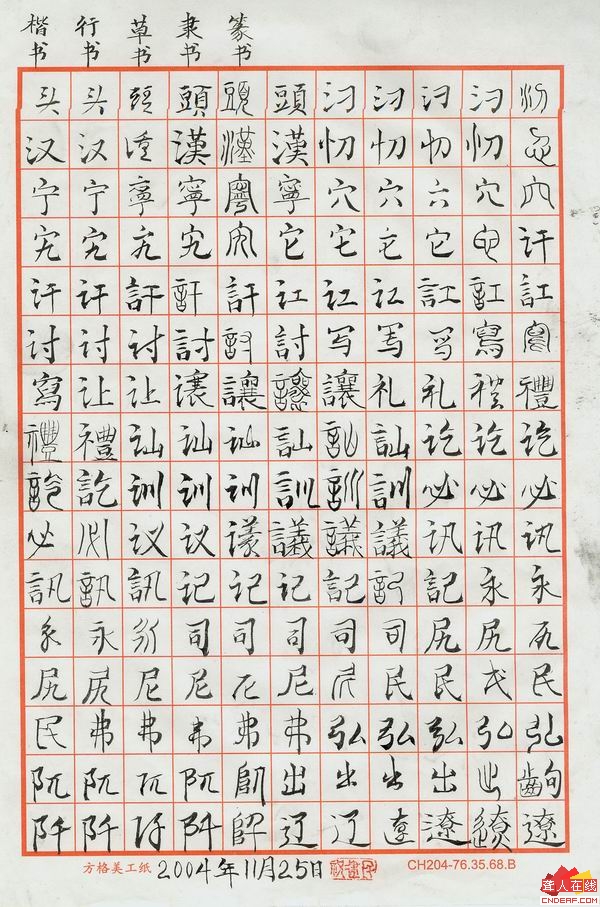 楷书 行书 草书 隶书 篆书
头 头 頭 頭 頭 頭 汈 汈 汈 汈 汈
汉 汉 漢 漢 漢 漢 忉 忉 忉 忉 忉
宁 宁 寧 寧 寧 寧 穴 穴 穴 穴 穴
宄 宄 宄 宄 宄 它 它 它 它 它 讦
讦 讦 訐 訐 訐 讧 讧 讧 訌 訌 訌
讨 讨 讨 討 討 討 写 写 写 寫 寫
寫 让 让 讓 讓 讓 讓 礼 礼 礼 禮
禮 禮 讪 讪 讪 訕 訕 訕 讫 讫 讫
訖 訖 训 训 训 訓 訓 訓 必 必 必
必 必 议 议 议 議 議 議 讯 讯 讯
訊 訊 訊 记 记 记 記 記 記 永 永
永 永 永 司 司 司 司 司 尻 尻 尻
尻 尻 尼 尼 尼 尼 尼 民 民 民 民
民 弗 弗 弗 弗 弗 弘 弘 弘 弘 弘
阢 阢 阢 阢 阢 出 出 出 出 出 齣
阡 阡 阡 阡 阡 辽 辽 遼 遼 遼 遼
方格美工纸 2004年11月25日 CH204-76.35.68.B
聋人在线
CNDEAF.COM